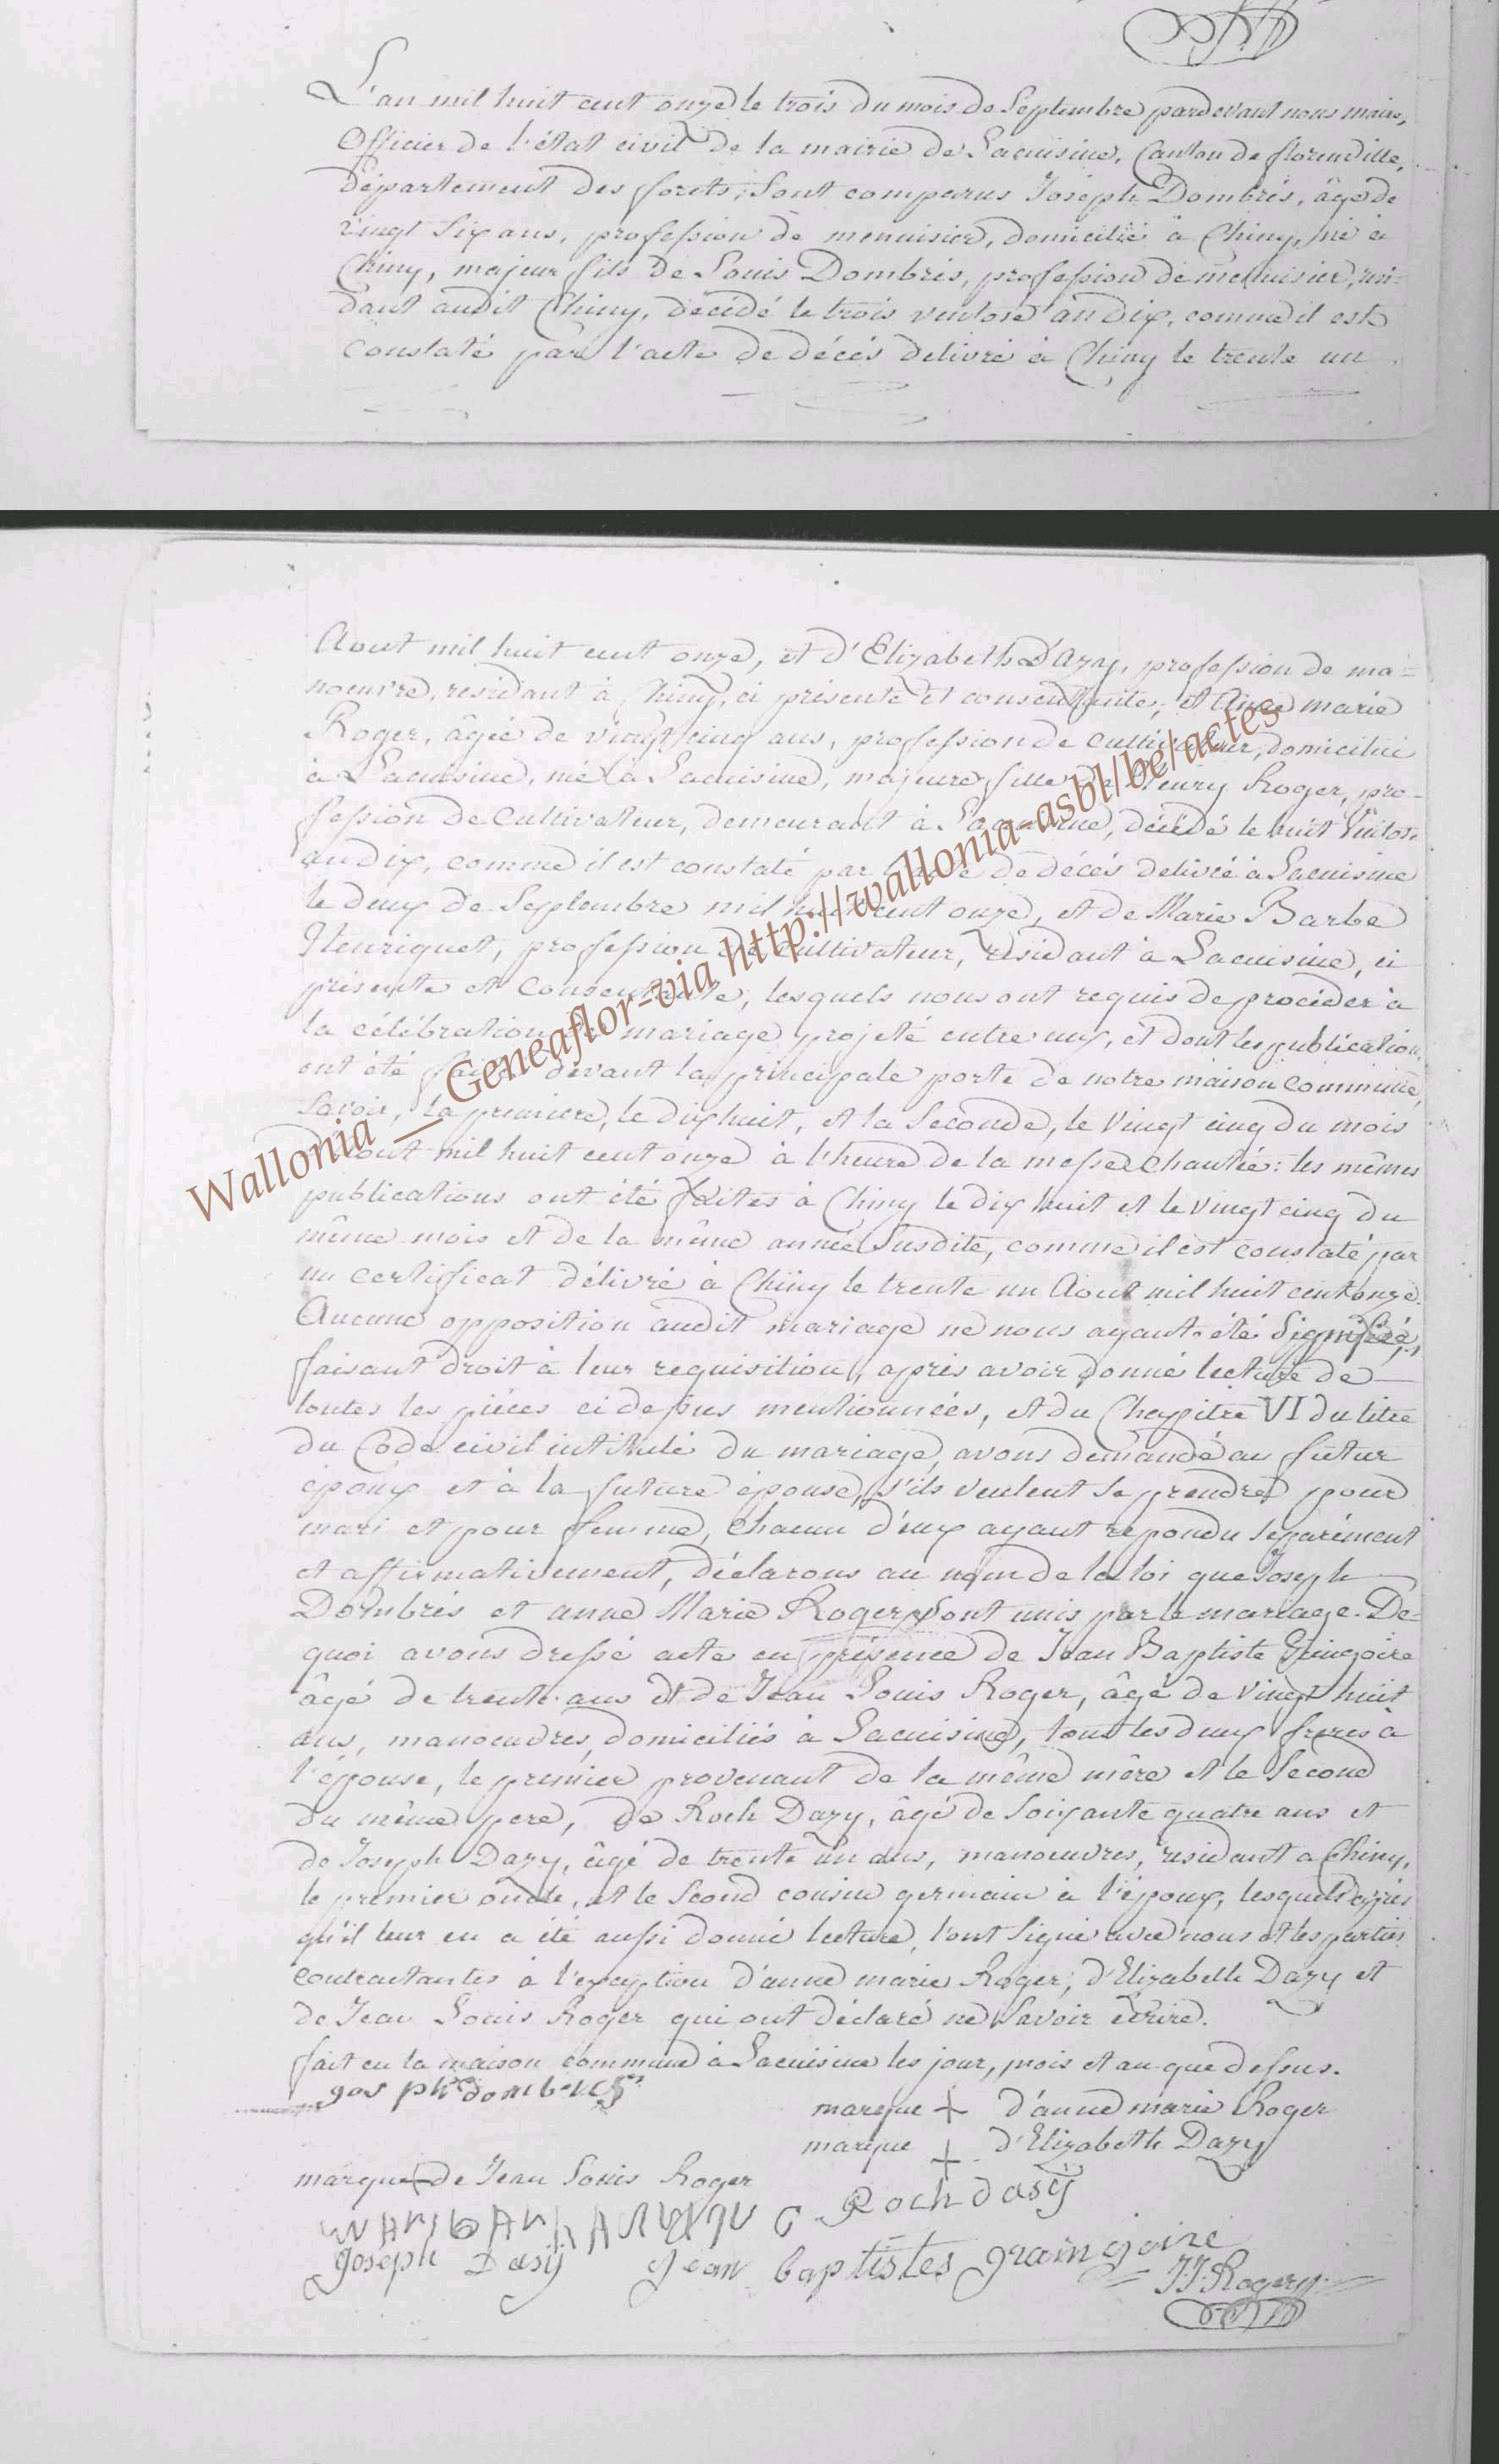 L'an mil huit cent onze le trois du mois de Septembre pardevant nous maire,
Officier de l'état civil de la mairie de Lacuisine, Canton de florenville,
département des forets, Sont comparus Joseph Dombrés, âgé de
vingt Six ans, profession de menuisier, domicilié à Chiny, né à
Chiny, majeur fils de Louis Dombrés, profession de menuisier, rési-
dant audit Chiny, décédé le trois ventose an dix, comme il est
constaté par l'acte de décés delivré à Chiny le trente un
Aout mil huit cent onze, et d'Elizabeth Dazy, profession de ma-
noeuvre, residant à Chiny, ci présente et consentante; et Anne marie
Roger, âgée de vingt cinq ans, profession de cultivateur, domiciliée
à Lacuisine, née à Lacuisine, majeure fille de Henry Roger, pro-
fession de Cultivateur, demeurant à Lacuisine, décédé le huit Ventose
an dix, comme il est constaté par l'acte de décés delivré à Lacuisine
le deux de Septembre mil huit cent onze, et de Marie Barbe
Henriquet, profession de Cultivateur, résidant à Lacuisine, ci
présente et Consentante; lesquels nous ont requis de procéder à
la célébration du mariage projeté entre eux, et dont les publications
ont été faites devant la principale porte de notre maison commune,
Savoir, la premiere, le dix huit, et la Seconde, le vingt cinq du mois
d'Aout mil huit cent onze à l'heure de la messe chantée: les mêmes
publications ont été faites à Chiny le dix huit et le vingt cinq du
même mois et de la même année Susdite, comme il est constaté par
un certificat délivré à Chiny le trente un Aout mil huit cent onze.
Aucune opposition audit mariage ne nous ayant été Signifiée,
faisant droit à leur requisition, après avoir donné lecture de
toutes les pièces ci dessus mentionnées, et du Chapitre VI du titre
du Code civil intitulé du mariage, avons demandé au futur
époux et à la future épouse, s'ils veulent se prendre pour
mari et pour femme, chacun d'eux ayant repondu séparément
et affirmativement, déclarons au nom de la loi que Joseph
Dombrés et anne Marie Roger Sont unis par le mariage. De
quoi avons dressé acte en présence de Jean Baptiste Gringoire
âgé de trente ans et de Jean Louis Roger, âgé de vingt huit
ans, manoeuvres, domiciliés à Lacuisine, tous les deux freres à
l'épouse, le premier provenant de la même mère et le Second
du même pere, de Roch Dazy, âgé de Soixante quatre ans et
de Joseph Dazy, âgé de trente un ans, manoeuvres, résidant a Chiny,
le premier oncle, et le Second cousin germain à l'époux, lesquels après
qu'il leur en a été aussi donné lecture, l'ont Signé avec nous et les parties
contractantes à l'exception d'anne marie Roger, d'Elizabeth Dazy et
de Jean Louis Roger qui ont déclaré ne Savoir écrire.
fait en la maison commune à Lacuisine les jour, mois et an que dessus.
marque + d'anne marie Roger
marque + d'Elizabeth Dazy
marque + de Jean Louis Roger
Roch dasÿ
Joseph Dasÿ Jean baptistes graingoire
J.J. Roger
Wallonia _ Geneaflor-via http://wallonia-asbl/be/actes